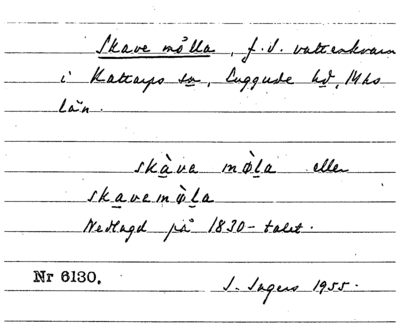 Skave mölla, f.d. vattenkvarn
i Kattarps sn, Luggude hd, Mhs
län.
skàva mø̀la eller
skavemø̀la
Nedlagd på 1830-talet.
Nr 6130.
I. Ingers 1955.